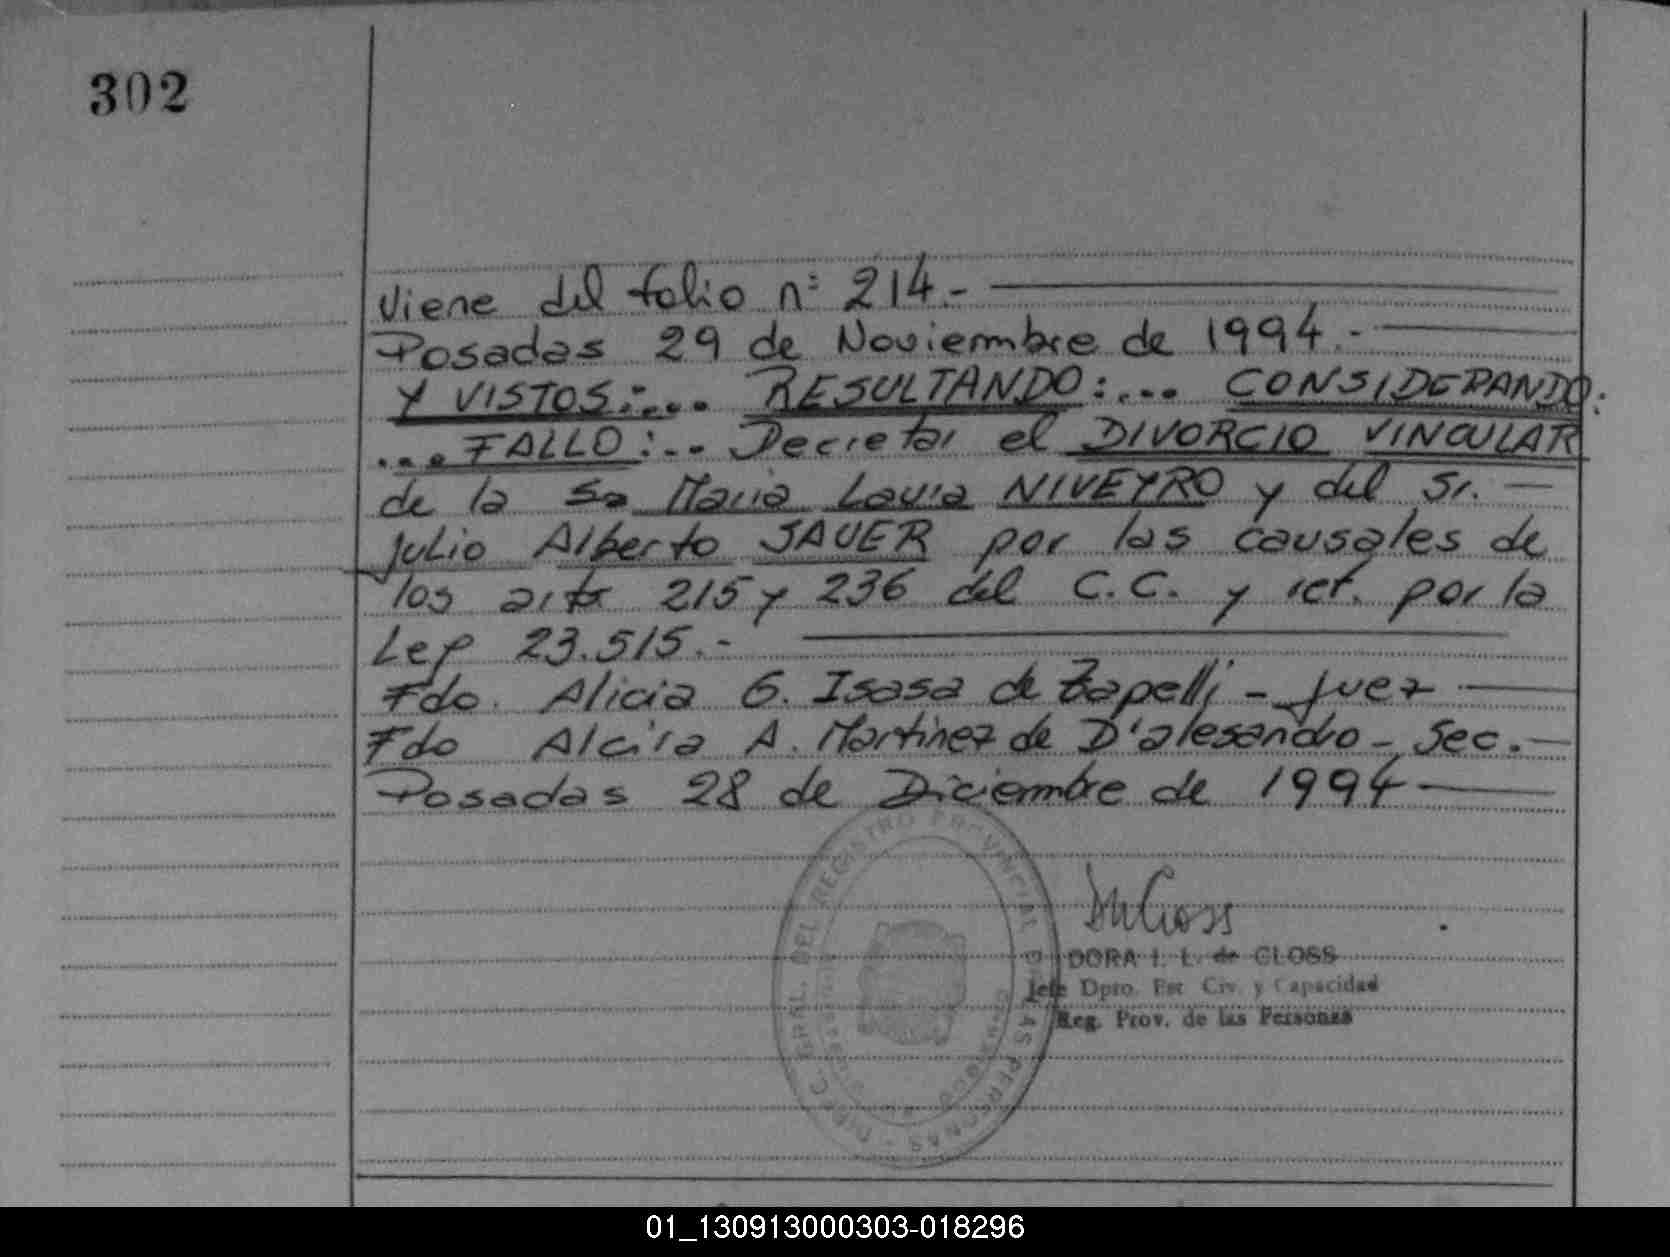 302
Viene del folio nº 214.-
Posadas 29 de Noviembre de 1994.-
Y VISTOS:... RESULTANDO:... CONSIDERANDO:
...FALLO:... Decretar el DIVORCIO VINCULAR
de la Sa Maria Laura NIVEYRO y del Sr.
Julio Alberto SAUER por las causales de
los arts 215 y 236 del C.C. y ref. por la
Ley 23.515.-
Fdo. Alicia G. Isasa de Zapelli - Juez
Fdo Alcira A. Martinez de D'alesandro - Sec.
Posadas 28 de Diciembre de 1994
DIREC. GRAL. DEL REGISTRO PROVINCIAL DE LAS PERSONAS
DORA I. L. de CLOSS
Jefe Dpto. Est Civ. y Capacidad
Reg. Prov. de las Personas
01_130913000303-018296